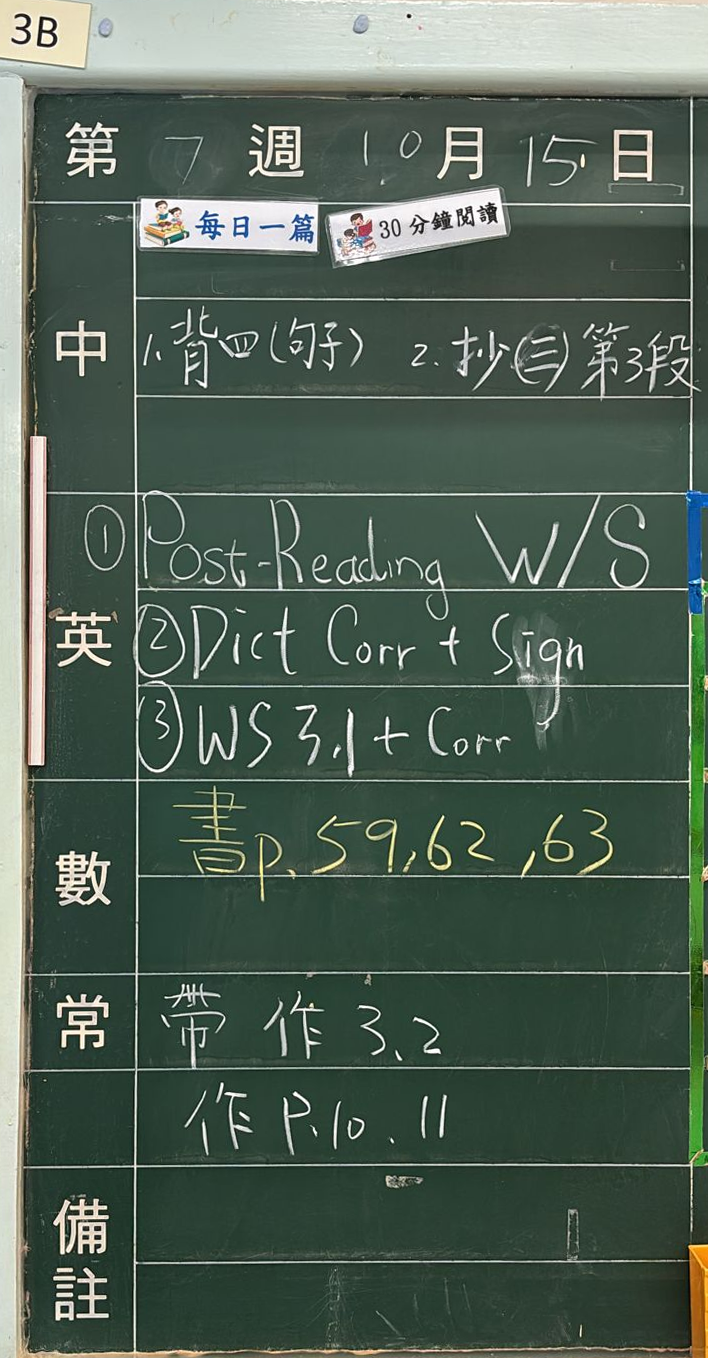 3B
第 7 週 10 月 15 日
每日一篇 30 分鐘閱讀
中 1. 背四(句子) 2. 抄(三)第3段
① Post-Reading W/S
英 ② Dict Corr + Sign
③ WS 3.1 + Corr
數 書p. 59, 62, 63
常 帶 作 3、2
作 P.10、11
備註